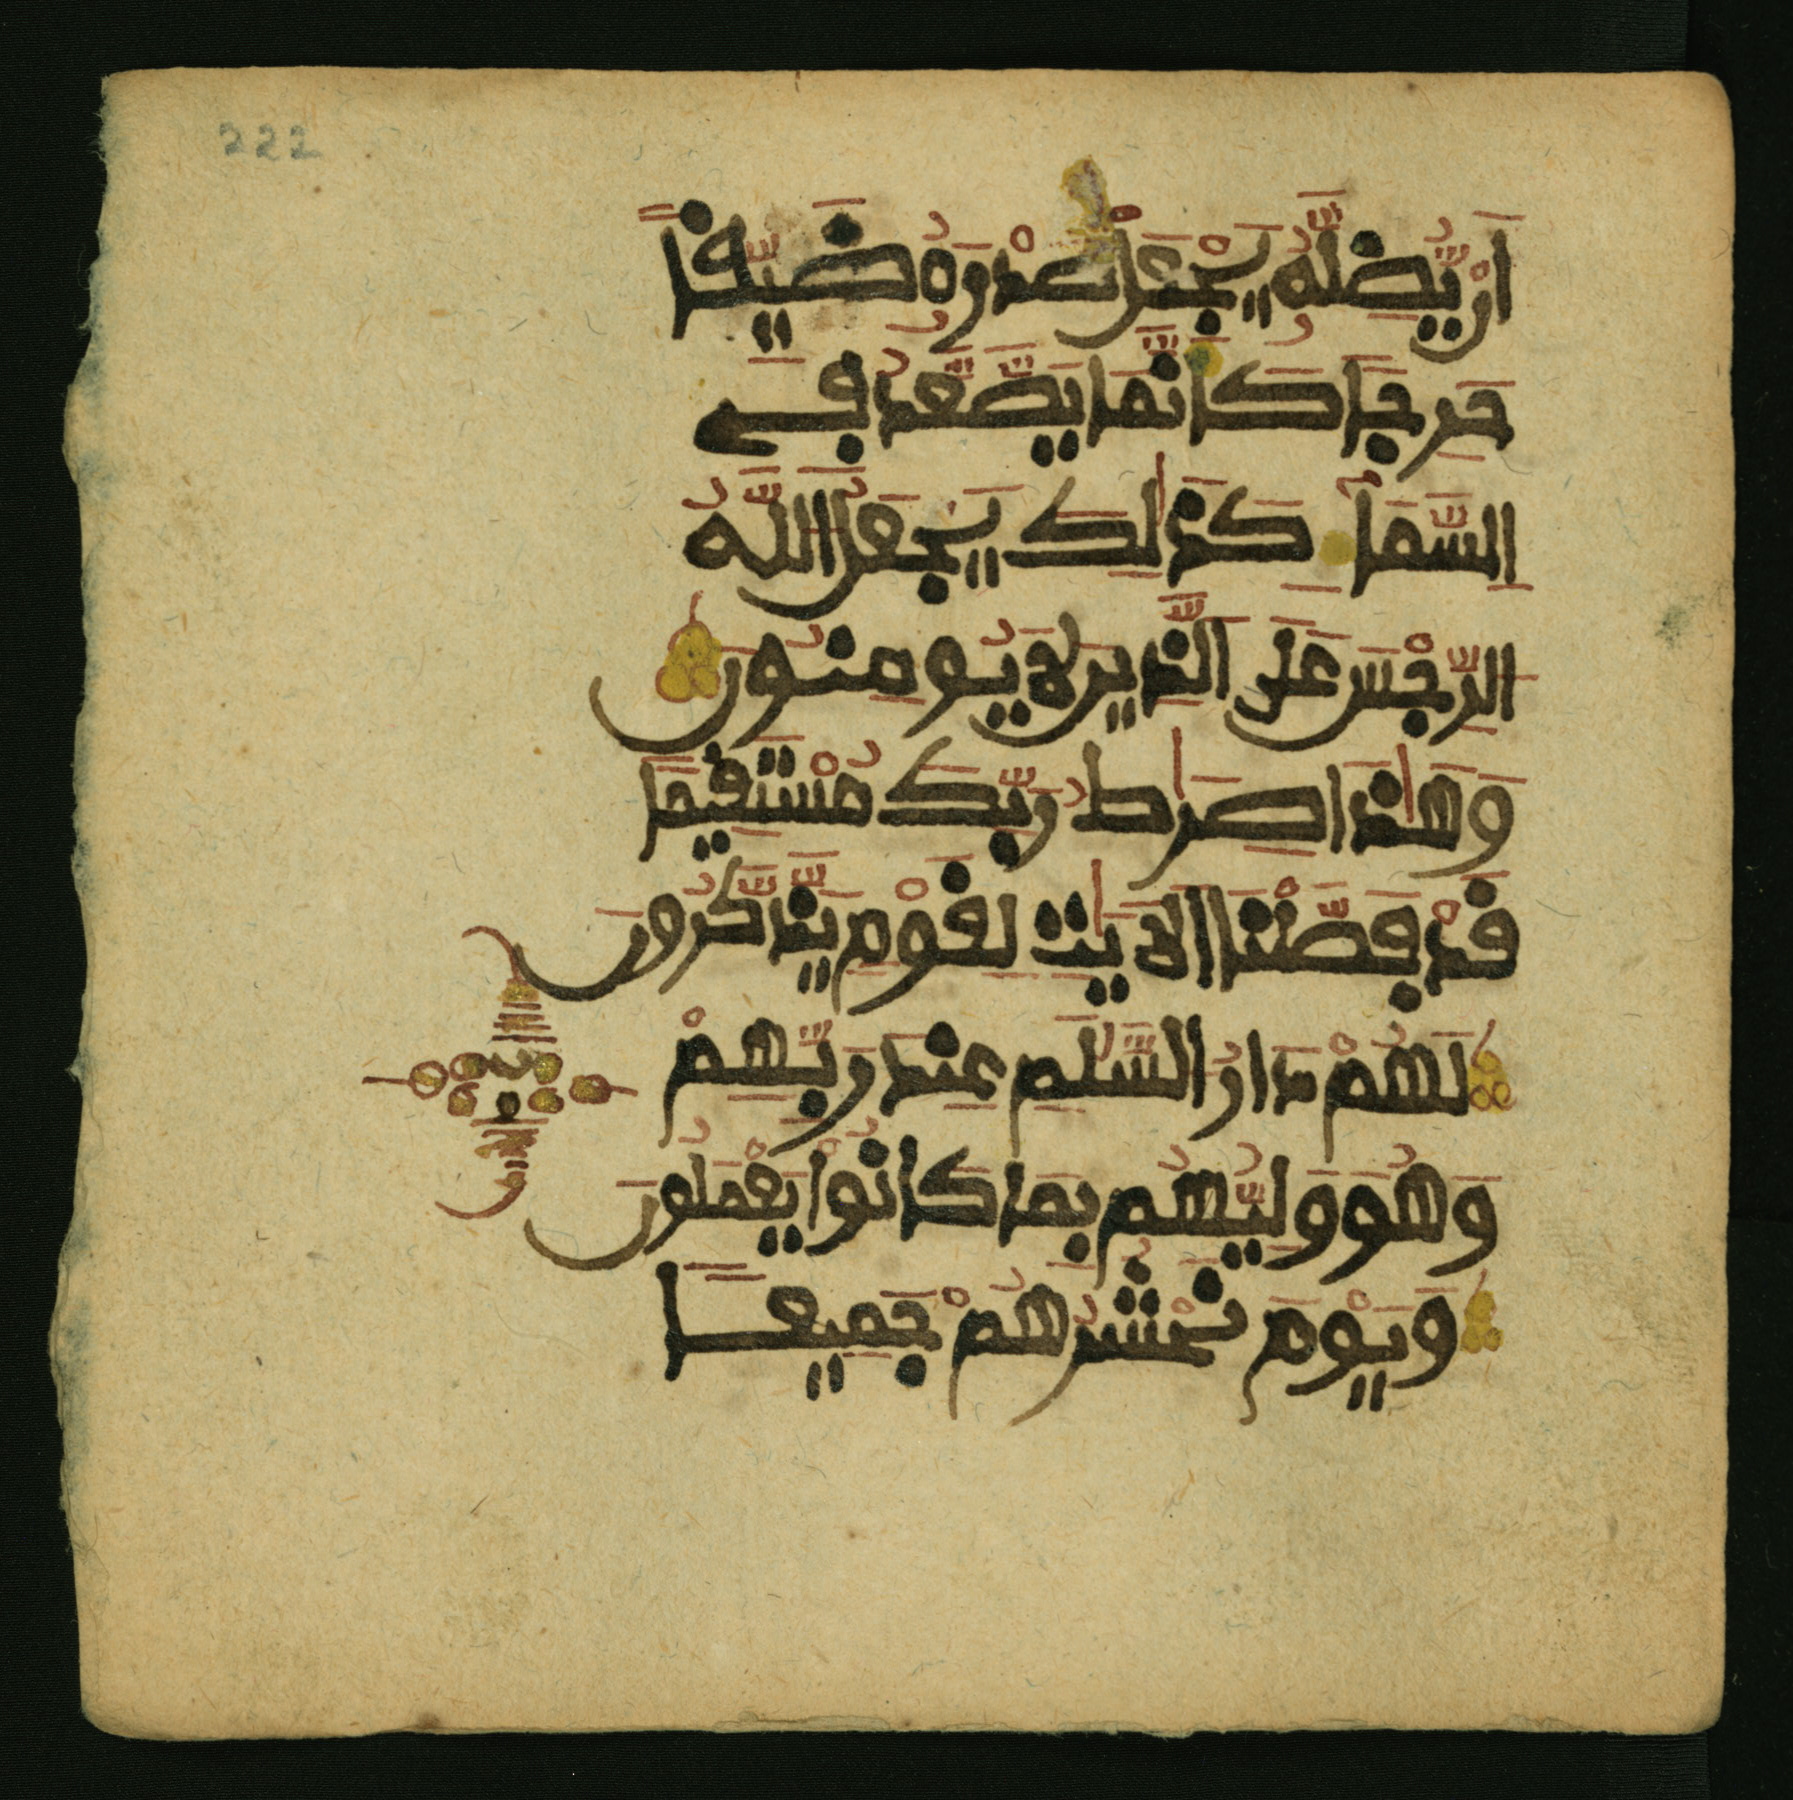 222
اَنْ يُّضِلَّهُۥ يَجْعَلْ صَدْرَهُۥ ضَيِّقًا
حَرِجًا كَأَنَّمَا يَصَّعَّدُ فِي
السَّمَآءِ كَذَٰلِكَ يَجْعَلُ اللَّهُ
الرِّجْسَ عَلَى الَّذِينَ لَا يُومِنُونَ
وَهَٰذَا صِرَٰطُ رَبِّكَ مُسْتَقِيمًا
قَدْ فَصَّلْنَا الَايَٰتِ لِقَوْمٍ يَذَّكَّرُونَ
لَهُمْ دَارُ السَّلَٰمِ عِنْدَ رَبِّهِمْ
وَهُوَ وَلِيُّهُم بِمَا كَانُوا يَعْمَلُونَ
وَيَوْمَ نَحْشُرُهُمْ جَمِيعًا